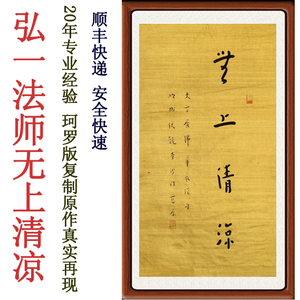 弘一法师无上清凉
20年专业经验 珂罗版复制原作真实再现
顺丰快递 安全快速
無上清凉